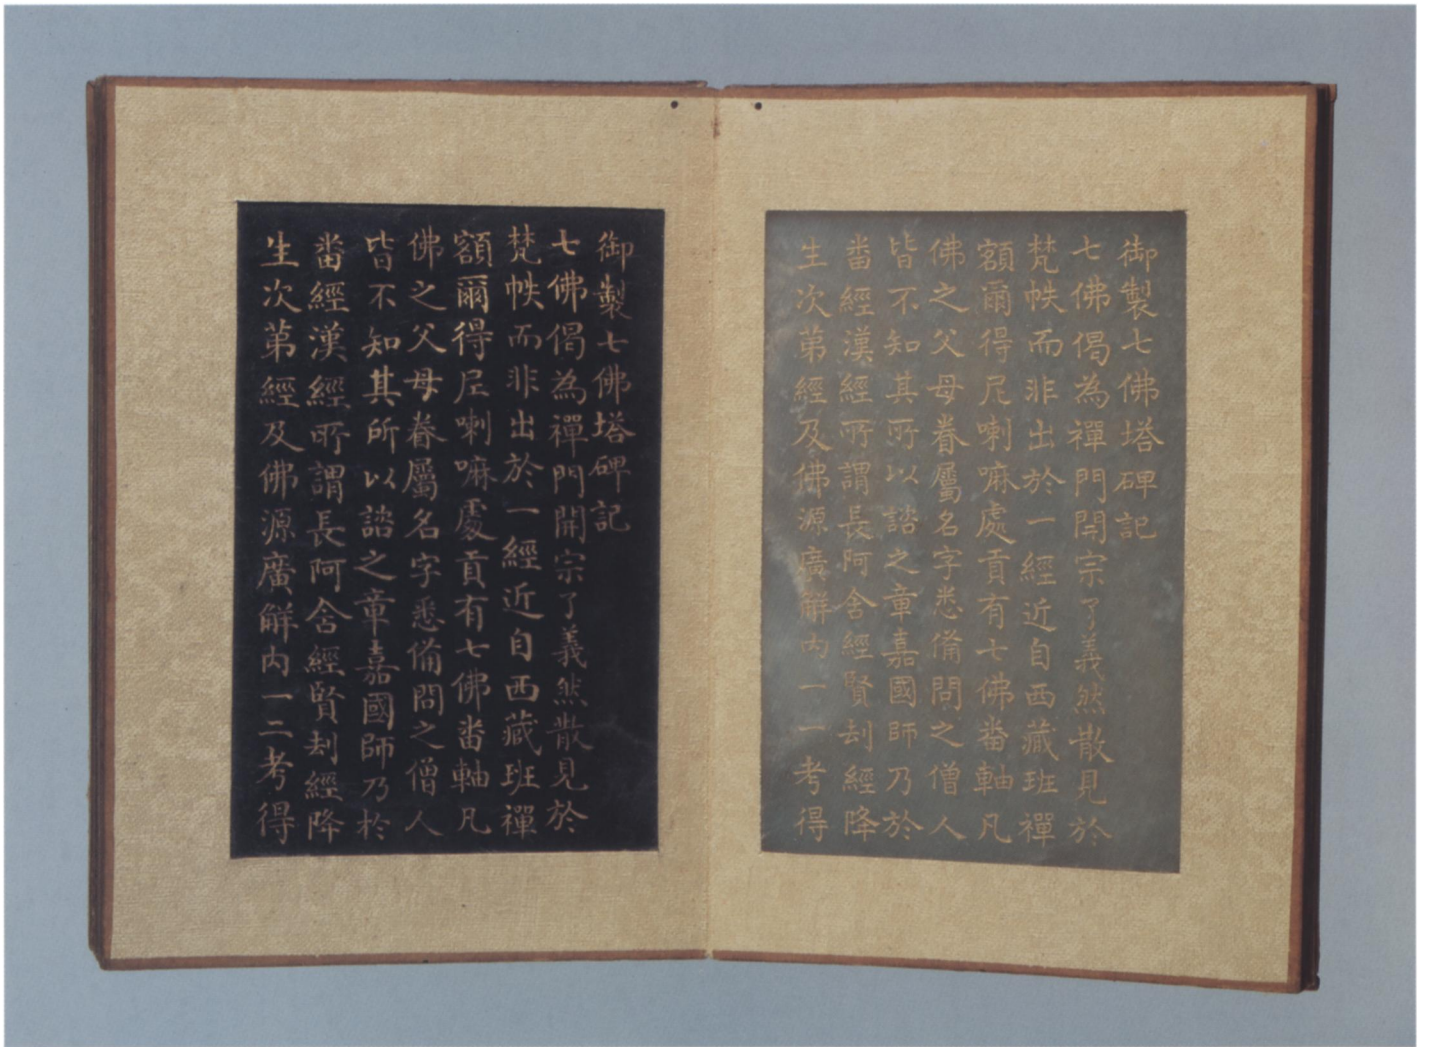 御製七佛塔碑記
七佛偈為禪門開宗了義然散見於
梵帙而非出於一經近自西藏班禪
額爾得尼喇嘛處貢有七佛畨軸凡
佛之父母眷屬名字悉備問之僧人
皆不知其所以諮之章嘉國師乃於
畨經漢經所謂長阿含經賢刦經降
生次第經及佛源廣解內一一考得
御製七佛塔碑記
七佛偈為禪門開宗了義然散見於
梵帙而非出於一經近自西藏班禪
額爾得尼喇嘛處貢有七佛畨軸凡
佛之父母眷屬名字悉備問之僧人
皆不知其所以諮之章嘉國師乃於
畨經漢經所謂長阿含經賢刦經降
生次第經及佛源廣解內一二考得